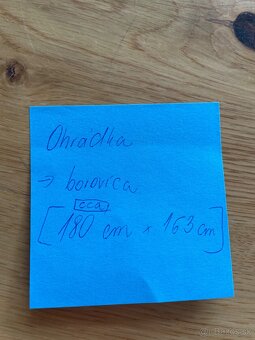 Ohradka
→ borovica
cca
[180 cm × 163 cm]